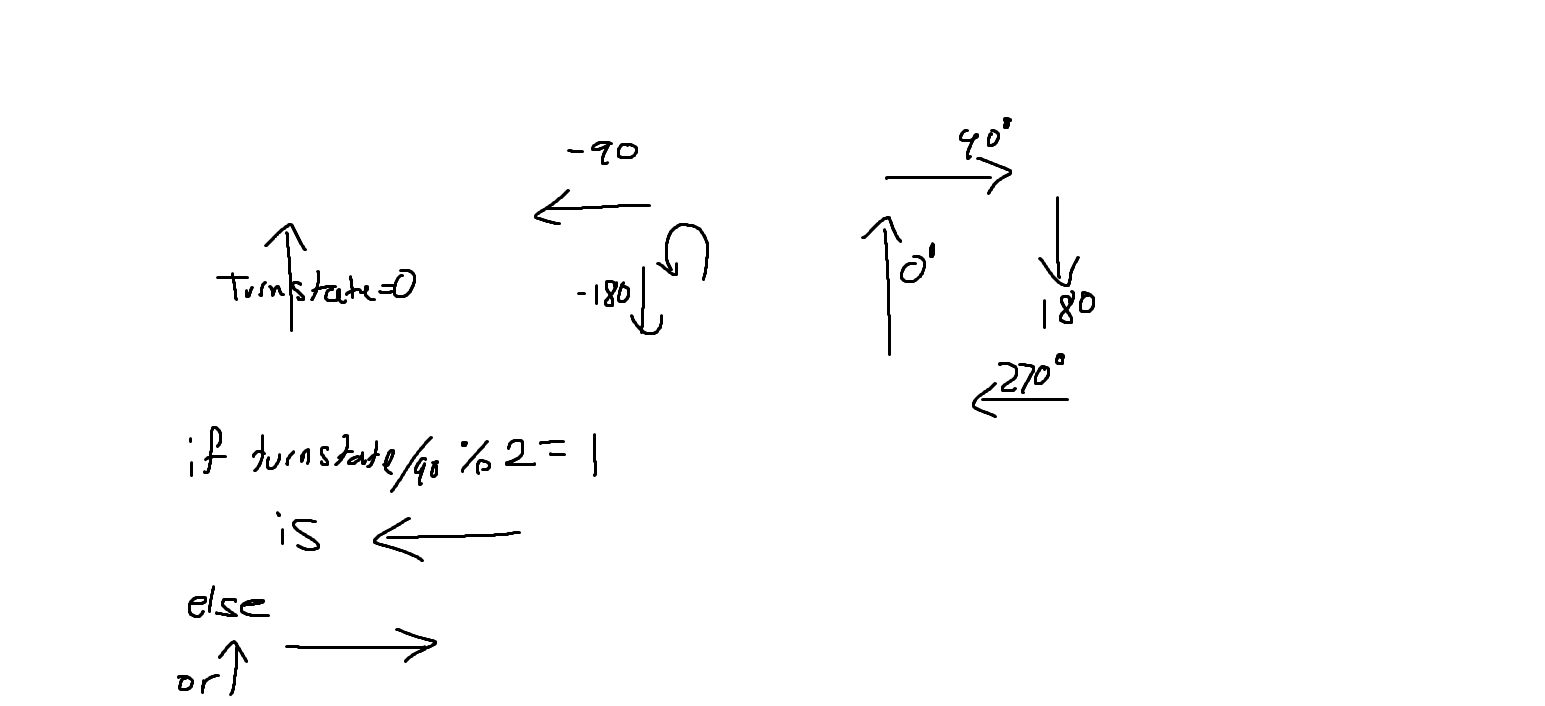 90°
-90
0°
Turnstate=0
-180
180
270°
if turnstate/90 % 2 = 1
is
else
or